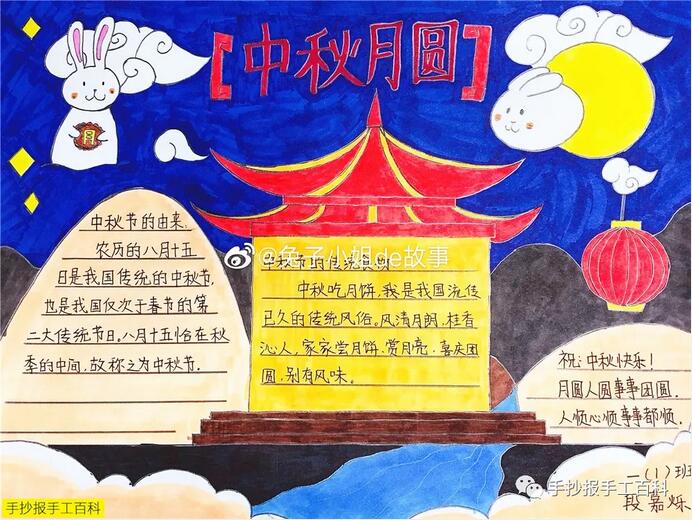 【中秋月圆】
月
中秋节的由来:
农历的八月十五
日是我国传统的中秋节,
也是我国仅次于春节的第
二大传统节日。八月十五恰在秋
季的中间,故称之为中秋节.
@兔子小姐de故事
中秋节的传统食俗
中秋吃月饼,我是我国流传
已久的传统风俗。风清月朗,桂香
沁人,家家尝月饼,赏月亮,喜庆团
圆,别有风味。
祝:中秋快乐!
月圆人圆事事团圆.
人顺心顺事事都顺.
一(1)班
段嘉烁
手抄报手工百科
手抄报手工百科